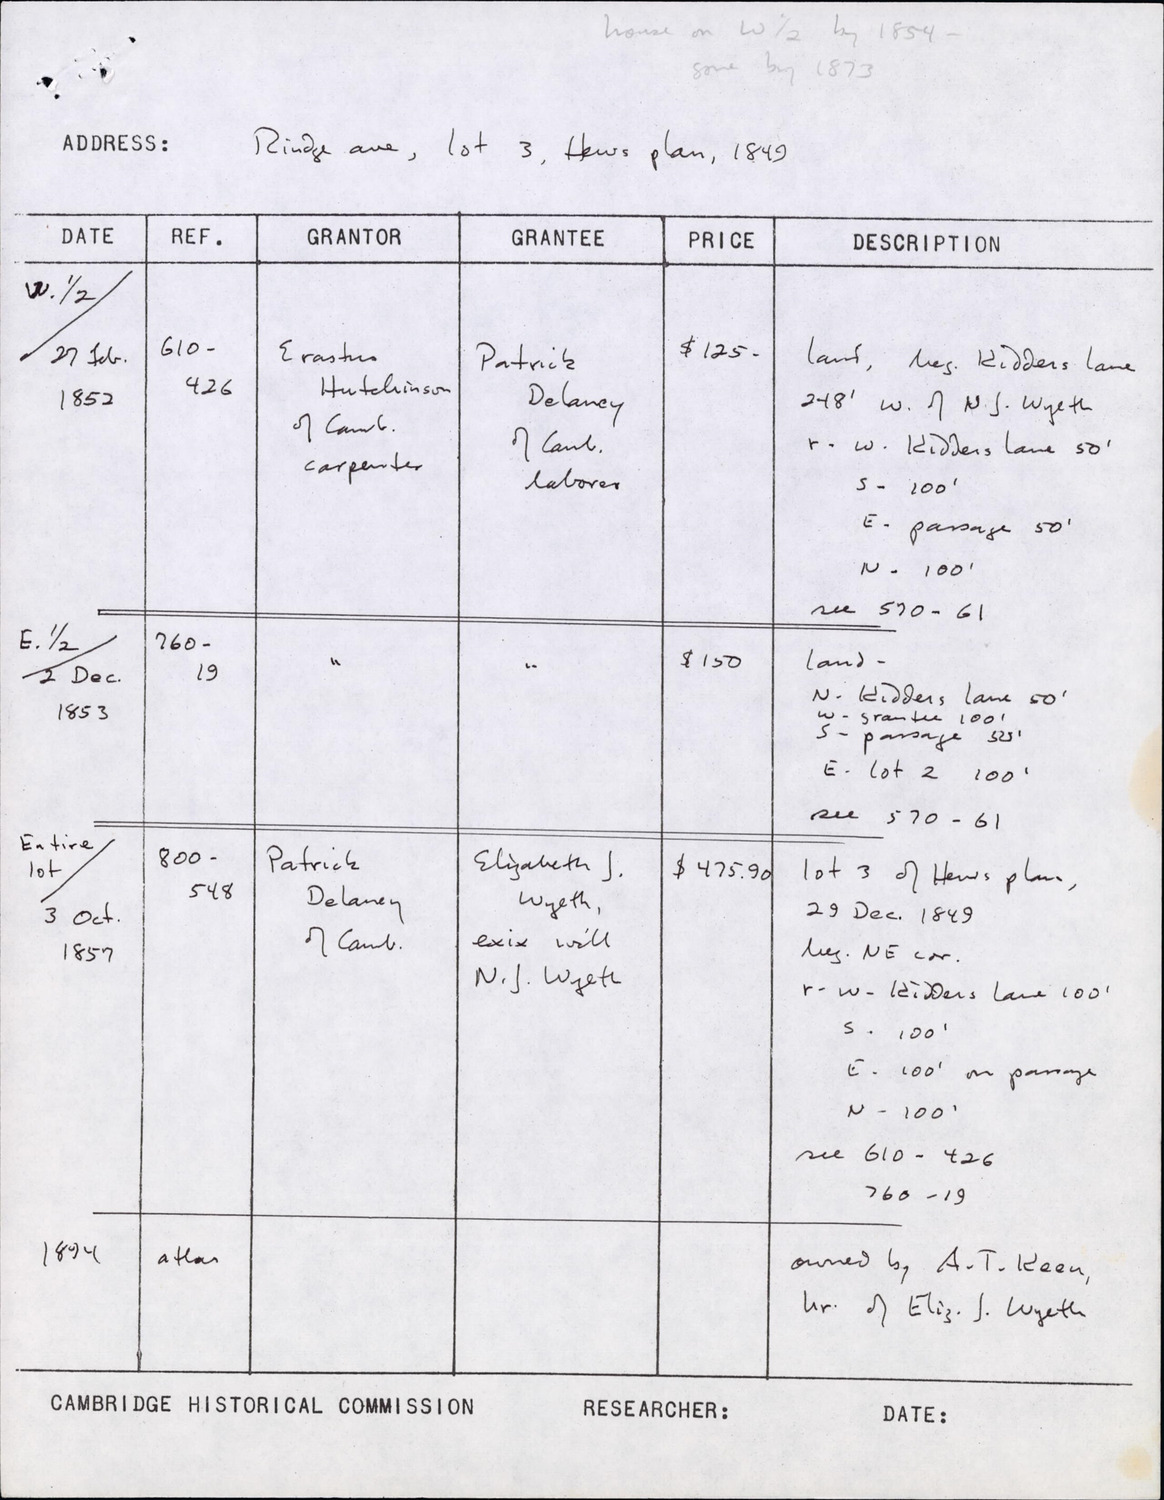 house on W 1/2 by 1854 -
gone by 1873
ADDRESS: Rindge ave, lot 3, Hews plan, 1849
DATE REF. GRANTOR GRANTEE PRICE DESCRIPTION
W. 1/2
27 Feb.
1852
610-
426
Erastus
Hutchinson
of Camb.
carpenter
Patrick
Delaney
of Camb.
laborer
$125-
land, beg. Kidders lane
248' w. of N.J. Wyeth
r - w. Kidders lane 50'
S - 100'
E - passage 50'
N - 100'
see 570-61
E. 1/2
2 Dec.
1853
760-
19
"
"
$150
land -
N - Kidders lane 50'
W - grantee 100'
S - passage
E - lot 2 100'
see 570-61
Entire
lot
3 Oct.
1857
800-
548
Patrick
Delaney
of Camb.
Elizabeth J.
Wyeth,
exix will
N.J. Wyeth
$475.90
lot 3 of Hews plan,
29 Dec. 1849
beg. NE cor.
r - w - Kidders lane 100'
S - 100'
E - 100' on passage
N - 100'
see 610-426
760-19
1894
atlas
owned by A.T. Keen,
hr. of Eliz. J. Wyeth
CAMBRIDGE HISTORICAL COMMISSION RESEARCHER: DATE: